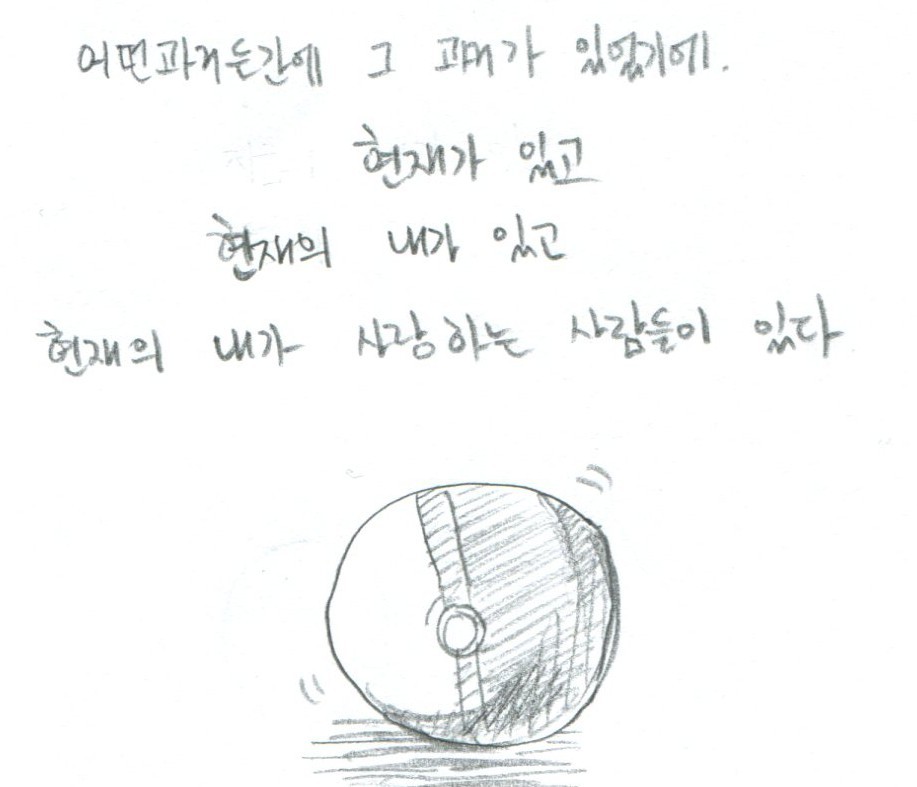 어떤과거든간에 그 과거가 있었기에.
현재가 있고
현재의 내가 있고
현재의 내가 사랑하는 사람들이 있다